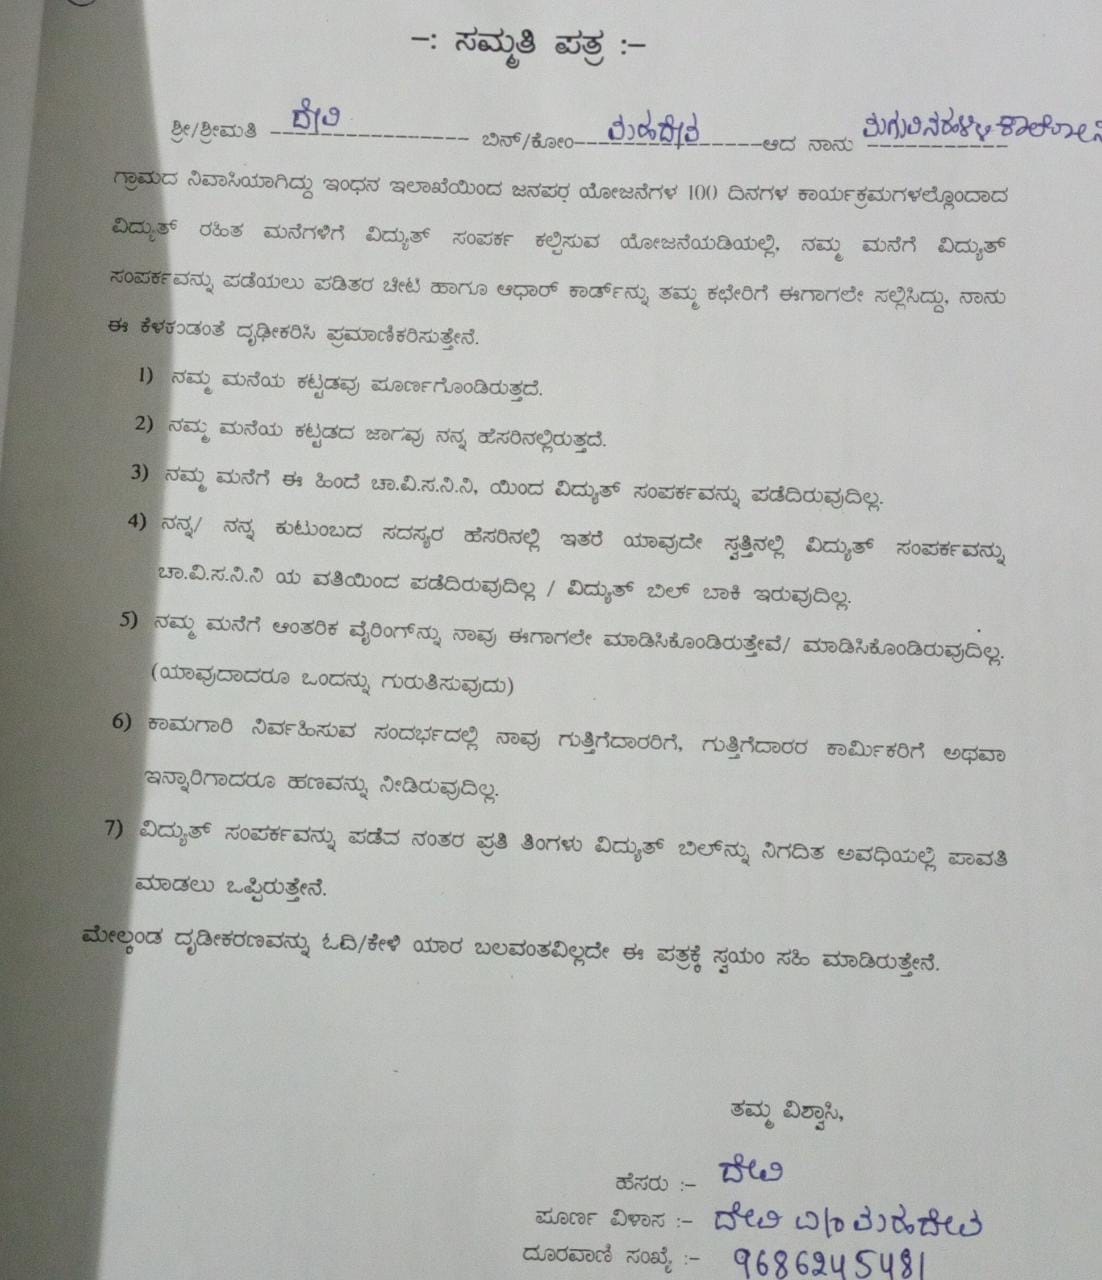 -: ಸಮ್ಮತಿ ಪತ್ರ :-
ಶ್ರೀ/ಶ್ರೀಮತಿ ದೇವಿ ಬಿನ್/ಕೋಂ ಮಹದೇವ ಆದ ನಾನು
ಗ್ರಾಮದ ನಿವಾಸಿಯಾಗಿದ್ದು ಇಂಧನ ಇಲಾಖೆಯಿಂದ ಜನಪರ ಯೋಜನೆಗಳ 100 ದಿನಗಳ ಕಾರ್ಯಕ್ರಮಗಳಲ್ಲೊಂದಾದ
ವಿದ್ಯುತ್ ರಹಿತ ಮನೆಗಳಿಗೆ ವಿದ್ಯುತ್ ಸಂಪರ್ಕ ಕಲ್ಪಿಸುವ ಯೋಜನೆಯಡಿಯಲ್ಲಿ, ನಮ್ಮ ಮನೆಗೆ ವಿದ್ಯುತ್
ಸಂಪರ್ಕವನ್ನು ಪಡೆಯಲು ಪಡಿತರ ಚೀಟಿ ಹಾಗೂ ಆಧಾರ್ ಕಾರ್ಡ್‌ನ್ನು ತಮ್ಮ ಕಛೇರಿಗೆ ಈಗಾಗಲೇ ಸಲ್ಲಿಸಿದ್ದು, ನಾನು
ಈ ಕೆಳಕಂಡಂತೆ ದೃಢೀಕರಿಸಿ ಪ್ರಮಾಣಿಕರಿಸುತ್ತೇನೆ.
1) ನಮ್ಮ ಮನೆಯ ಕಟ್ಟಡವು ಪೂರ್ಣಗೊಂಡಿರುತ್ತದೆ.
2) ನಮ್ಮ ಮನೆಯ ಕಟ್ಟಡದ ಜಾಗವು ನನ್ನ ಹೆಸರಿನಲ್ಲಿರುತ್ತದೆ.
3) ನಮ್ಮ ಮನೆಗೆ ಈ ಹಿಂದೆ ಚಾ.ವಿ.ಸ.ನಿ.ನಿ, ಯಿಂದ ವಿದ್ಯುತ್ ಸಂಪರ್ಕವನ್ನು ಪಡೆದಿರುವುದಿಲ್ಲ.
4) ನನ್ನ/ ನನ್ನ ಕುಟುಂಬದ ಸದಸ್ಯರ ಹೆಸರಿನಲ್ಲಿ ಇತರೆ ಯಾವುದೇ ಸ್ವತ್ತಿನಲ್ಲಿ ವಿದ್ಯುತ್ ಸಂಪರ್ಕವನ್ನು
ಚಾ.ವಿ.ಸ.ನಿ.ನಿ ಯ ವತಿಯಿಂದ ಪಡೆದಿರುವುದಿಲ್ಲ / ವಿದ್ಯುತ್ ಬಿಲ್ ಬಾಕಿ ಇರುವುದಿಲ್ಲ.
5) ನಮ್ಮ ಮನೆಗೆ ಆಂತರಿಕ ವೈರಿಂಗ್‌ನ್ನು ನಾವು ಈಗಾಗಲೇ ಮಾಡಿಸಿಕೊಂಡಿರುತ್ತೇವೆ/ ಮಾಡಿಸಿಕೊಂಡಿರುವುದಿಲ್ಲ.
(ಯಾವುದಾದರೂ ಒಂದನ್ನು ಗುರುತಿಸುವುದು)
6) ಕಾಮಗಾರಿ ನಿರ್ವಹಿಸುವ ಸಂದರ್ಭದಲ್ಲಿ ನಾವು ಗುತ್ತಿಗೆದಾರರಿಗೆ, ಗುತ್ತಿಗೆದಾರರ ಕಾರ್ಮಿಕರಿಗೆ ಅಥವಾ
ಇನ್ನಾರಿಗಾದರೂ ಹಣವನ್ನು ನೀಡಿರುವುದಿಲ್ಲ.
7) ವಿದ್ಯುತ್ ಸಂಪರ್ಕವನ್ನು ಪಡೆದ ನಂತರ ಪ್ರತಿ ತಿಂಗಳು ವಿದ್ಯುತ್ ಬಿಲ್‌ನ್ನು ನಿಗದಿತ ಅವಧಿಯಲ್ಲಿ ಪಾವತಿ
ಮಾಡಲು ಒಪ್ಪಿರುತ್ತೇನೆ.
ಮೇಲ್ಕಂಡ ದೃಡೀಕರಣವನ್ನು ಓದಿ/ಕೇಳಿ ಯಾರ ಬಲವಂತವಿಲ್ಲದೇ ಈ ಪತ್ರಕ್ಕೆ ಸ್ವಯಂ ಸಹಿ ಮಾಡಿರುತ್ತೇನೆ.
ತಮ್ಮ ವಿಶ್ವಾಸಿ,
ಹೆಸರು :- ದೇವಿ
ಪೂರ್ಣ ವಿಳಾಸ :- ದೇವಿ ಮಹದೇವ
ದೂರವಾಣಿ ಸಂಖ್ಯೆ :- 9686245481